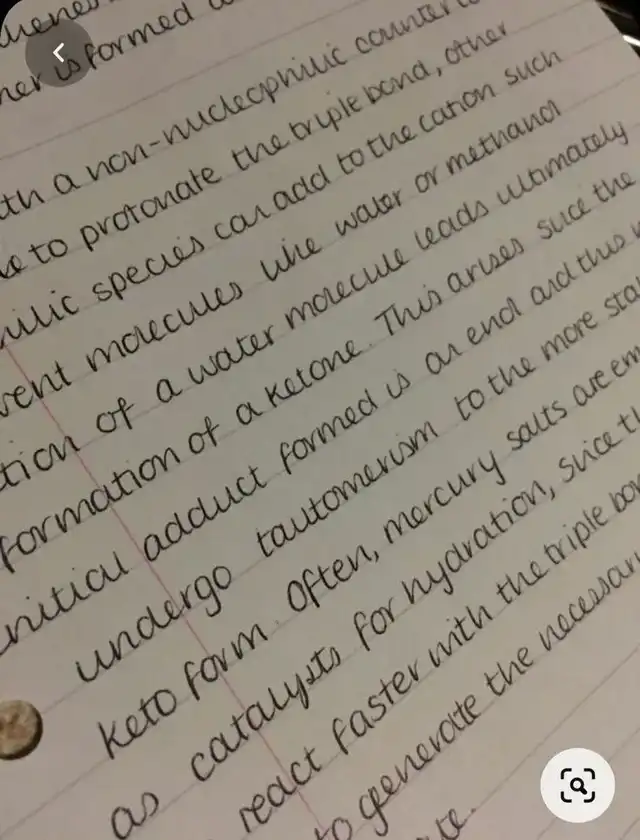 is formed
a non-nucleophilic counter
to protonate the triple bond, other
species can add to the cation such
molecules like water or methanol
of a water molecule leads ultimately
formation of a ketone. This arises sice the
adduct formed is an enol and this
undergo tautomerism to the more
keto form. Often, mercury salts are
as catalysts for hydration, sice
react faster with the triple
to generate the